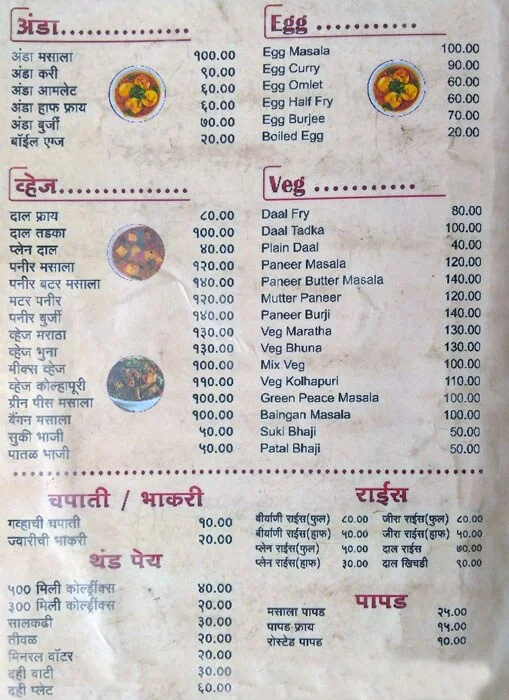 अंडा
अंडा मसाला १००.००
अंडा करी ९०.००
अंडा आमलेट ६०.००
अंडा हाफ फ्राय ६०.००
अंडा बुर्जी ७०.००
बॉईल एग्ज २०.००
Egg
Egg Masala 100.00
Egg Curry 90.00
Egg Omlet 60.00
Egg Half Fry 60.00
Egg Burjee 70.00
Boiled Egg 20.00
व्हेज
दाल फ्राय ८०.००
दाल तडका १००.००
प्लेन दाल ४०.००
पनीर मसाला १२०.००
पनीर बटर मसाला १४०.००
मटर पनीर १२०.००
पनीर बुर्जी १४०.००
व्हेज मराठा १३०.००
व्हेज भुना १३०.००
मीक्स व्हेज १००.००
व्हेज कोल्हापूरी ११०.००
ग्रीन पीस मसाला १००.००
बैंगन मसाला १००.००
सुकी भाजी ५०.००
पातळ भाजी ५०.००
Veg
Daal Fry 80.00
Daal Tadka 100.00
Plain Daal 40.00
Paneer Masala 120.00
Paneer Butter Masala 140.00
Mutter Paneer 120.00
Paneer Burji 140.00
Veg Maratha 130.00
Veg Bhuna 130.00
Mix Veg 100.00
Veg Kolhapuri 110.00
Green Peace Masala 100.00
Baingan Masala 100.00
Suki Bhaji 50.00
Patal Bhaji 50.00
चपाती / भाकरी
गव्हाची चपाती १०.००
ज्वारीची भाकरी २०.००
थंड पेय
५०० मिली कोल्ड्रींक्स ४०.००
३00 मिली कोल्ड्रींक्स २०.००
सालकढी ३०.००
तीवळ २०.००
मिनरल वॉटर २०.००
दही वाटी ३०.००
दही प्लेट ६०.००
राईस
बीर्याणी राईस(फुल) ८०.०० जीरा राईस(फुल) ८०.००
बीर्याणी राईस(हाफ) ५०.०० जीरा राईस(हाफ) ५०.००
प्लेन राईस(फुल) ५०.०० दाल राईस ७०.००
प्लेन राईस(हाफ) ३०.०० दाल खिचडी ९०.००
पापड
मसाला पापड २५.००
पापड फ्राय १५.००
रोस्टेड पापड १०.००